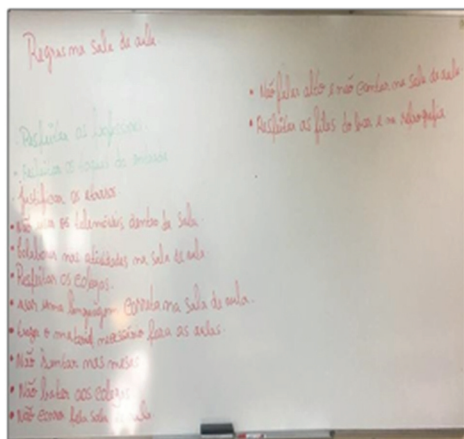 Regras na sala de aula
Respeitar os professores.
Respeitar os toques de entrada
Justificar os atrasos
• Não usar os telemóveis dentro da sala.
• Colaborar nas atividades na sala de aula.
• Respeitar os colegas.
• usar uma linguagem correta na sala de aula.
• traga o material necessário para as aulas.
• Não sentar nas mesas
• Não bater aos colegas
• Não correr pela sala de aula
• Não falar alto e não cantar na sala de aula
• Respeitar as filas do bar e na reprografia